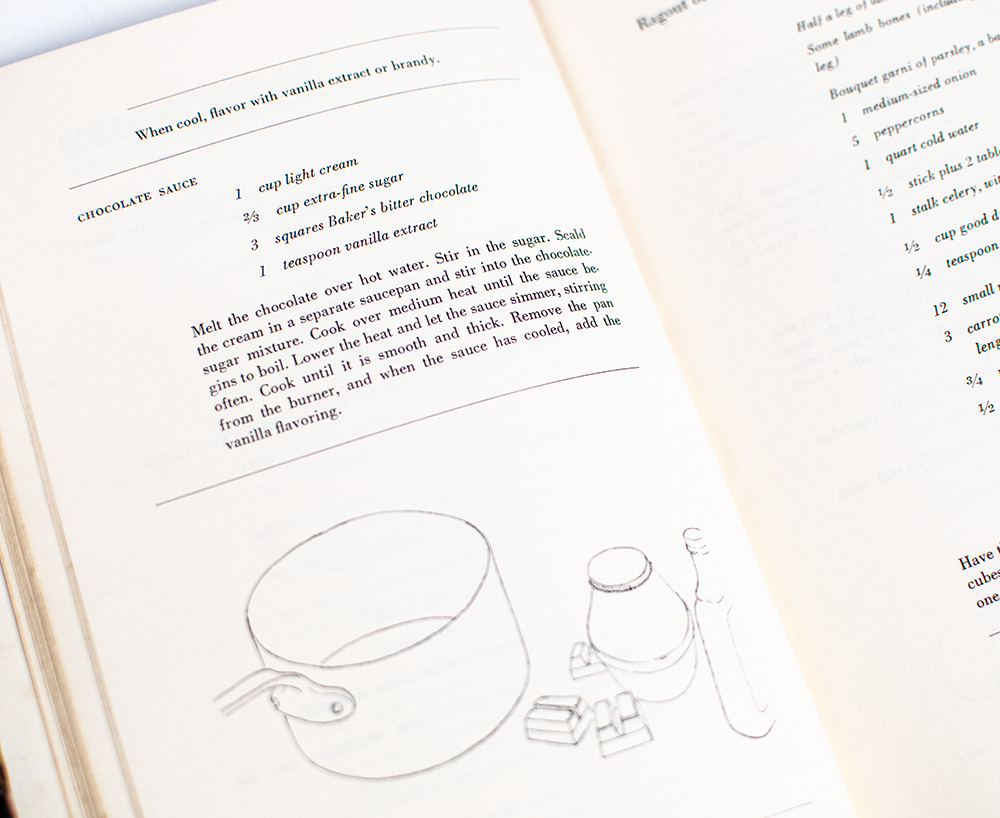 When cool, flavor with vanilla extract or brandy.
CHOCOLATE SAUCE
1 cup light cream
⅔ cup extra-fine sugar
3 squares Baker's bitter chocolate
1 teaspoon vanilla extract
Melt the chocolate over hot water. Stir in the sugar. Scald
the cream in a separate saucepan and stir into the chocolate-
sugar mixture. Cook over medium heat until the sauce be-
gins to boil. Lower the heat and let the sauce simmer, stirring
often. Cook until it is smooth and thick. Remove the pan
from the burner, and when the sauce has cooled, add the
vanilla flavoring.
Ragout
Half a leg of
Some lamb bones
leg)
Bouquet garni of parsley, a
1 medium-sized onion
5 peppercorns
1 quart cold water
½ stick plus 2
1 stalk celery,
½ cup good
¼ teaspoon
12 small
3
¾
½
Have
cubes
one